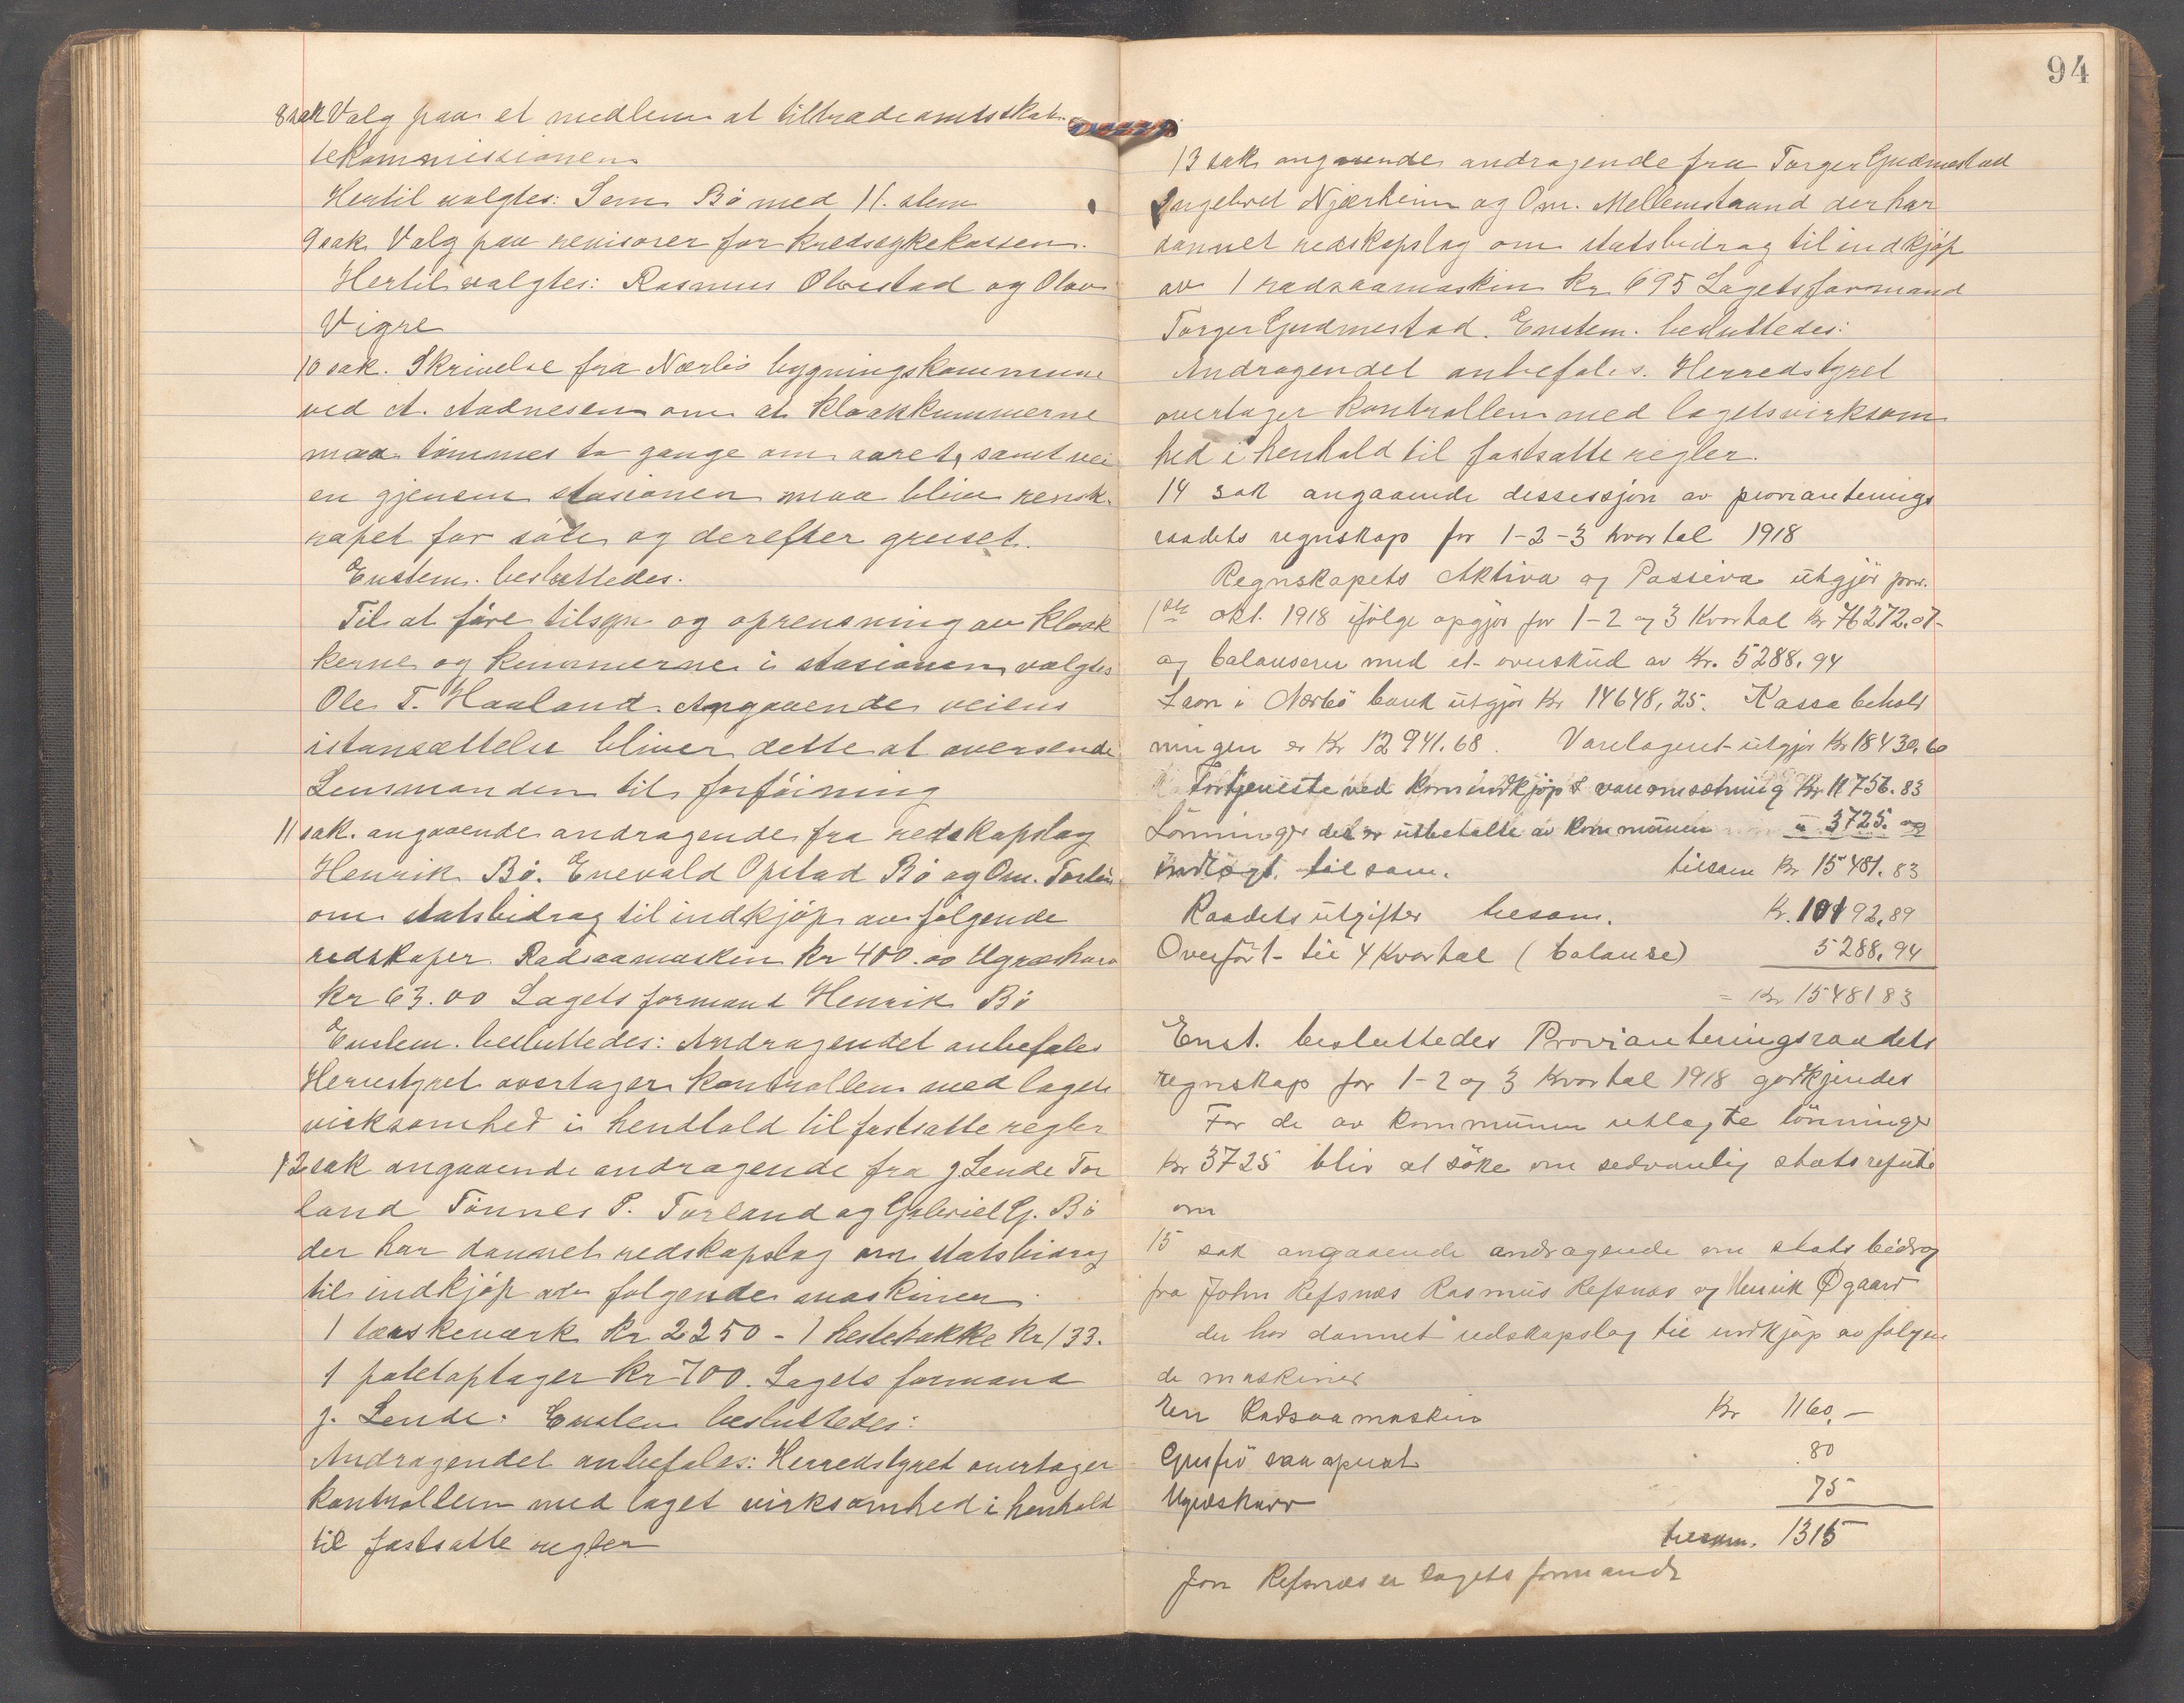 8 sak Valg paa et medlem at tiltræde amtsskat-
tekommissionen
Hertil valgtes: Sem Bö med 11. stem
9 sak Valg paa revisorer for kredssykekassen.
Hertil valgtes: Rasmus Obrestad og Olav
Vigre
10 sak. Skrivelse fra Nærbö bygningskommune
ved A. Aadnesen om at kloakkummerne
maa tömmes to gange om aaret, samt vei
en gjenem stasionen maa blive rensk-
rapet for söle og derefter gruset.
Enstem. besluttedes.
Til at före tilsyn og oprensning av kloak
kerne og kummerne i stasionen valgtes
Ole T. Haaland. Angaaende veiens
istansættelse bliver dette at oversende
Lensmanden til forföining
11 sak. angaaende andragende fra redskapslag
Henrik Bö. Enevald Opstad Bö og Om. Torland
om statsbidrag til indkjöp av fölgende
redskaper. Radsaamaskin kr 400.00 Ugræsharv
kr 63.00 Lagets formand Henrik Bö
Enstem. besluttedes: Andragendet anbefales
Herrestyret overtager kontrollen med lagets
virksomhed i hendhold til fastsatte regler
12 sak angaaende andragende fra J Lende Tor
land Tönnes P. Torland og Gabriel G. Bö
der har dannet redskapslag om statsbidrag
til indkjöp av følgende maskiner
1 tærskeværk kr 2250 - 1 hestehakke kr 133.
1 potetoptager kr 700. Lagets formand
J. Lende. Enstem besluttedes:
Andragendet anbefales: Herredstyret overtager
kontrollen med laget virksomhed i henhold
til fastsatte regler
94
13 sak angaaende andragende fra Torger Gudmestad
Ingebret Njærheim og Om. Mellemstrand der har
dannet redskapslag om statsbidrag til indkjöp
av 1 radsaamaskin kr 695 Lagets formand
Torger Gudmestad. Enstem. besluttedes:
Andragendet anbefales. Herredstyret
overtager kontrollen med lagets virksom
hed i henhold til fastsatte regler.
14 sak angaaende dessessjon av provianterings
raadets regnskap for 1-2-3 kvartal 1918
Regnskapets Aktiva og Passiva utgjör pr.
1ste okt. 1918 ifölge opgjör for 1-2 og 3 Kvartal kr 76272.07-
og balanserer med et overskud av kr. 5288.94
Laan i Nærbö bank utgjör kr 14648,25. Kassabehold
ningen er kr 12941.68. Varelageret utgjör kr 18430.60
Fortjeneste ved kornindkjöp & vareomsætning kr 11756.83
Lönninger det er utbetalte av kommunen " 3725.00
indlagt. til sam. tilsam kr 15481.83
Raadets utgifter tilsam. kr. 10192,89
Overfört til 4 Kvartal (balanse) 5288,94
= kr 1548183
Enst. besluttedes Provianteringsraadets
regnskap for 1-2 og 3 kvartal 1918 godkjendes
For de av kommunen utlagte lönninger
kr 3725 blir at söke om sedvanlig statsrefusi
on
15 sak angaaende andragende om statsbidrag
fra John Refsnæs Rasmus Refsnæs og Henrik Øgaard
der har dannet redskapslag til indkjöp av følgen
de maskiner
En Radsaamaskin Kr 1160,-
Græsfrö saa aparat 80
Ugræsharv 75
tilsam. 1315
Jon Refsnæs er lagets formand